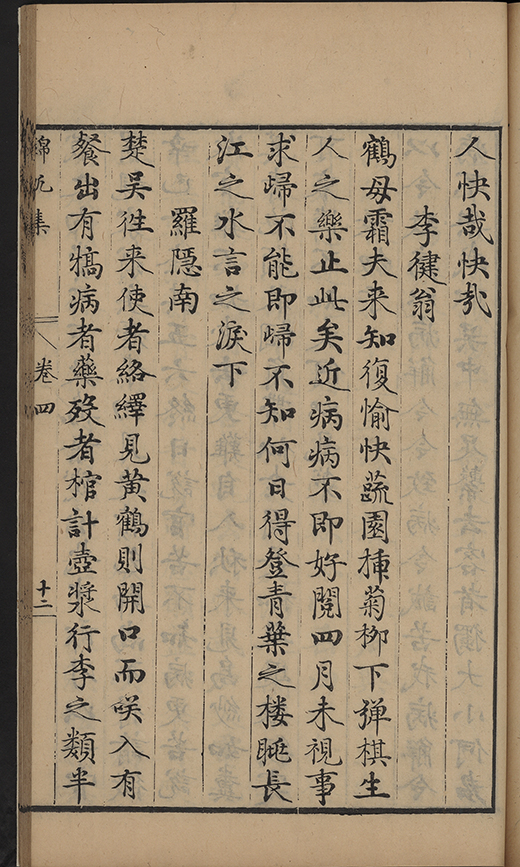 人快哉快哉
李健翁
鶴毋霜夫来知復愉快蔬園揷菊柳下弹棋生
人之樂止此矣近病病不即好閱四月未視事
求歸不能即歸不知何日得登青葉之楼眺長
江之水言之淚下
羅隱南
楚吴徃来使者絡繹見黃鶴則開口而咲入有
餐出有犒病者藥殁者棺計壺漿行李之類半
錦
集
卷四
十二